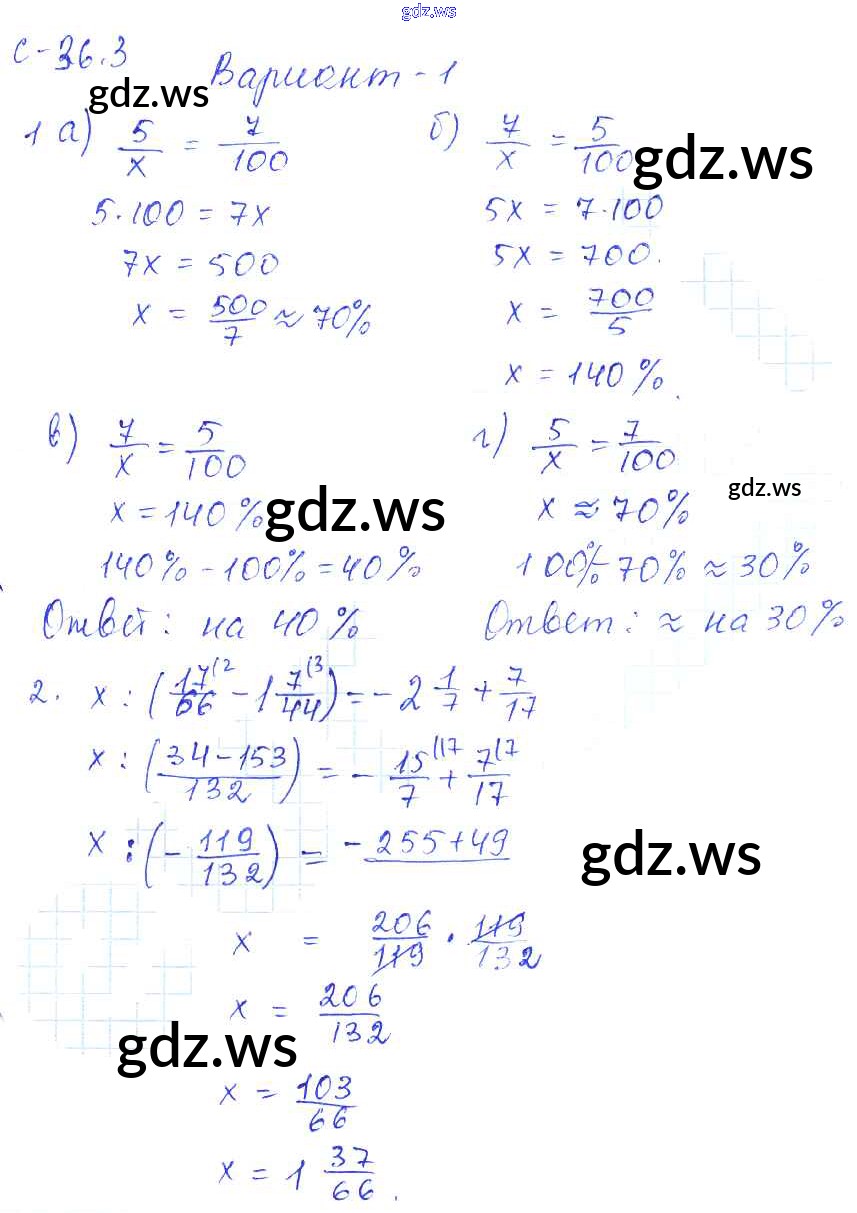 gdz.ws
С-36.3
Вариант-1
gdz.ws
1 а) 5/x = 7/100
5·100 = 7x
7x = 500
x = 500/7 ≈ 70%
б) 7/x = 5/100
gdz.ws
5x = 7·100
5x = 700.
x = 700/5
x = 140%.
в) 7/x = 5/100
x = 140%
gdz.ws
140% - 100% = 40%
Ответ: на 40%
г) 5/x = 7/100
gdz.ws
x ≈ 70%
100% - 70% ≈ 30%
Ответ: ≈ на 30%
2. x : (17/66 (2 - 1 7/44 (3) = -2 1/7 + 7/17
x : ((34-153)/132) = - 15/7 (17 + 7/17 (7
x : (- 119/132) = (-255+49)/
gdz.ws
x = 206/119 · 119/132
x = 206/132
gdz.ws
x = 103/66
x = 1 37/66.